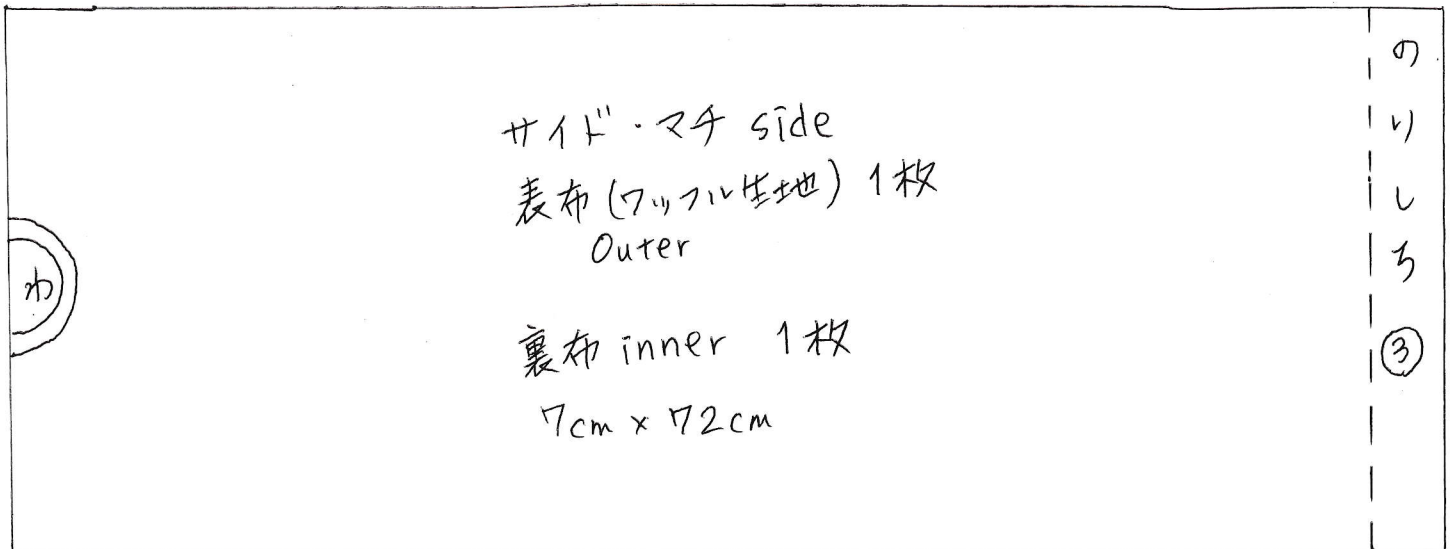 サイド・マチ side
表布(ワッフル生地) 1枚
Outer
裏布 inner 1枚
7cm × 72cm
わ
のりしろ ③